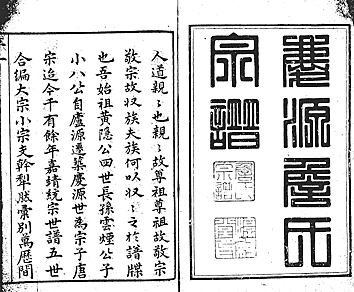 慶源詹氏
宗譜
人道親〻也親〻故尊祖尊祖故敬宗
敬宗故収族夫族何以収〻之於譜牒
也吾始祖黄隱公四世長孫雲煙公子
小八公自廬源遷慶源世為宗子唐
宋迨今千有餘年嘉靖統宗世譜五世
合編大宗小宗支幹犁然彚別萬歷間